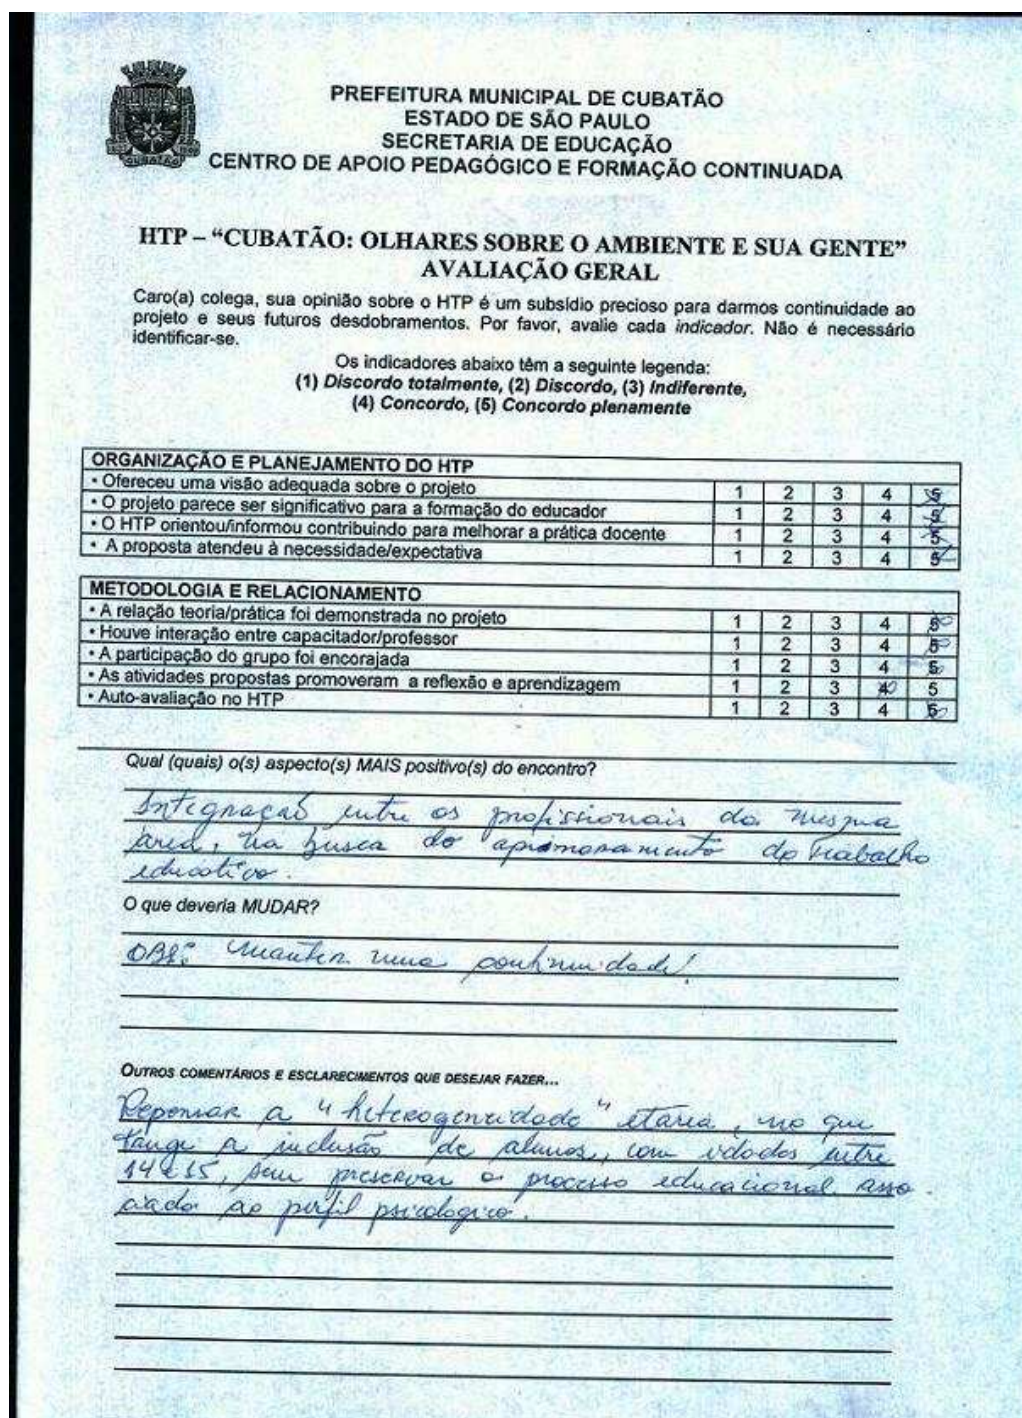 CUBATÃO
PREFEITURA MUNICIPAL DE CUBATÃO
ESTADO DE SÃO PAULO
SECRETARIA DE EDUCAÇÃO
CENTRO DE APOIO PEDAGÓGICO E FORMAÇÃO CONTINUADA
HTP – “CUBATÃO: OLHARES SOBRE O AMBIENTE E SUA GENTE”
AVALIAÇÃO GERAL
Caro(a) colega, sua opinião sobre o HTP é um subsídio precioso para darmos continuidade ao
projeto e seus futuros desdobramentos. Por favor, avalie cada indicador. Não é necessário
identificar-se.
Os indicadores abaixo têm a seguinte legenda:
(1) Discordo totalmente, (2) Discordo, (3) Indiferente,
(4) Concordo, (5) Concordo plenamente
ORGANIZAÇÃO E PLANEJAMENTO DO HTP
• Ofereceu uma visão adequada sobre o projeto 1 2 3 4 5
• O projeto parece ser significativo para a formação do educador 1 2 3 4 5
• O HTP orientou/informou contribuindo para melhorar a prática docente 1 2 3 4 5
• A proposta atendeu à necessidade/expectativa 1 2 3 4 5
METODOLOGIA E RELACIONAMENTO
• A relação teoria/prática foi demonstrada no projeto 1 2 3 4 5
• Houve interação entre capacitador/professor 1 2 3 4 5
• A participação do grupo foi encorajada 1 2 3 4 5
• As atividades propostas promoveram a reflexão e aprendizagem 1 2 3 4 5
• Auto-avaliação no HTP 1 2 3 4 5
Qual (quais) o(s) aspecto(s) MAIS positivo(s) do encontro?
Integração entre os profissionais da mesma
área, na busca do aprimoramento do trabalho
educativo.
O que deveria MUDAR?
OBS: Manter uma continuidade!
OUTROS COMENTÁRIOS E ESCLARECIMENTOS QUE DESEJAR FAZER...
Repensar a "heterogeneidade" etária, no que
tange a inclusão de alunos, com idades entre
14 e 15, sem preservar o processo educacional asso
ciado ao perfil psicológico.